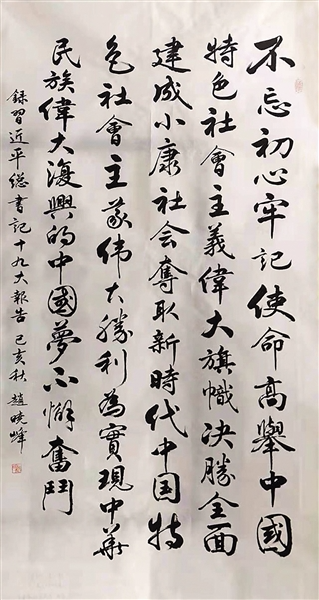 不忘初心牢記使命高舉中國
特色社會主義偉大旗幟决勝全面
建成小康社会奪取新時代中国特
色社會主義伟大勝利為實現中華
民族偉大復興的中國夢不懈奮鬥
録習近平總書記十九大報告 己亥秋 趙曉峰